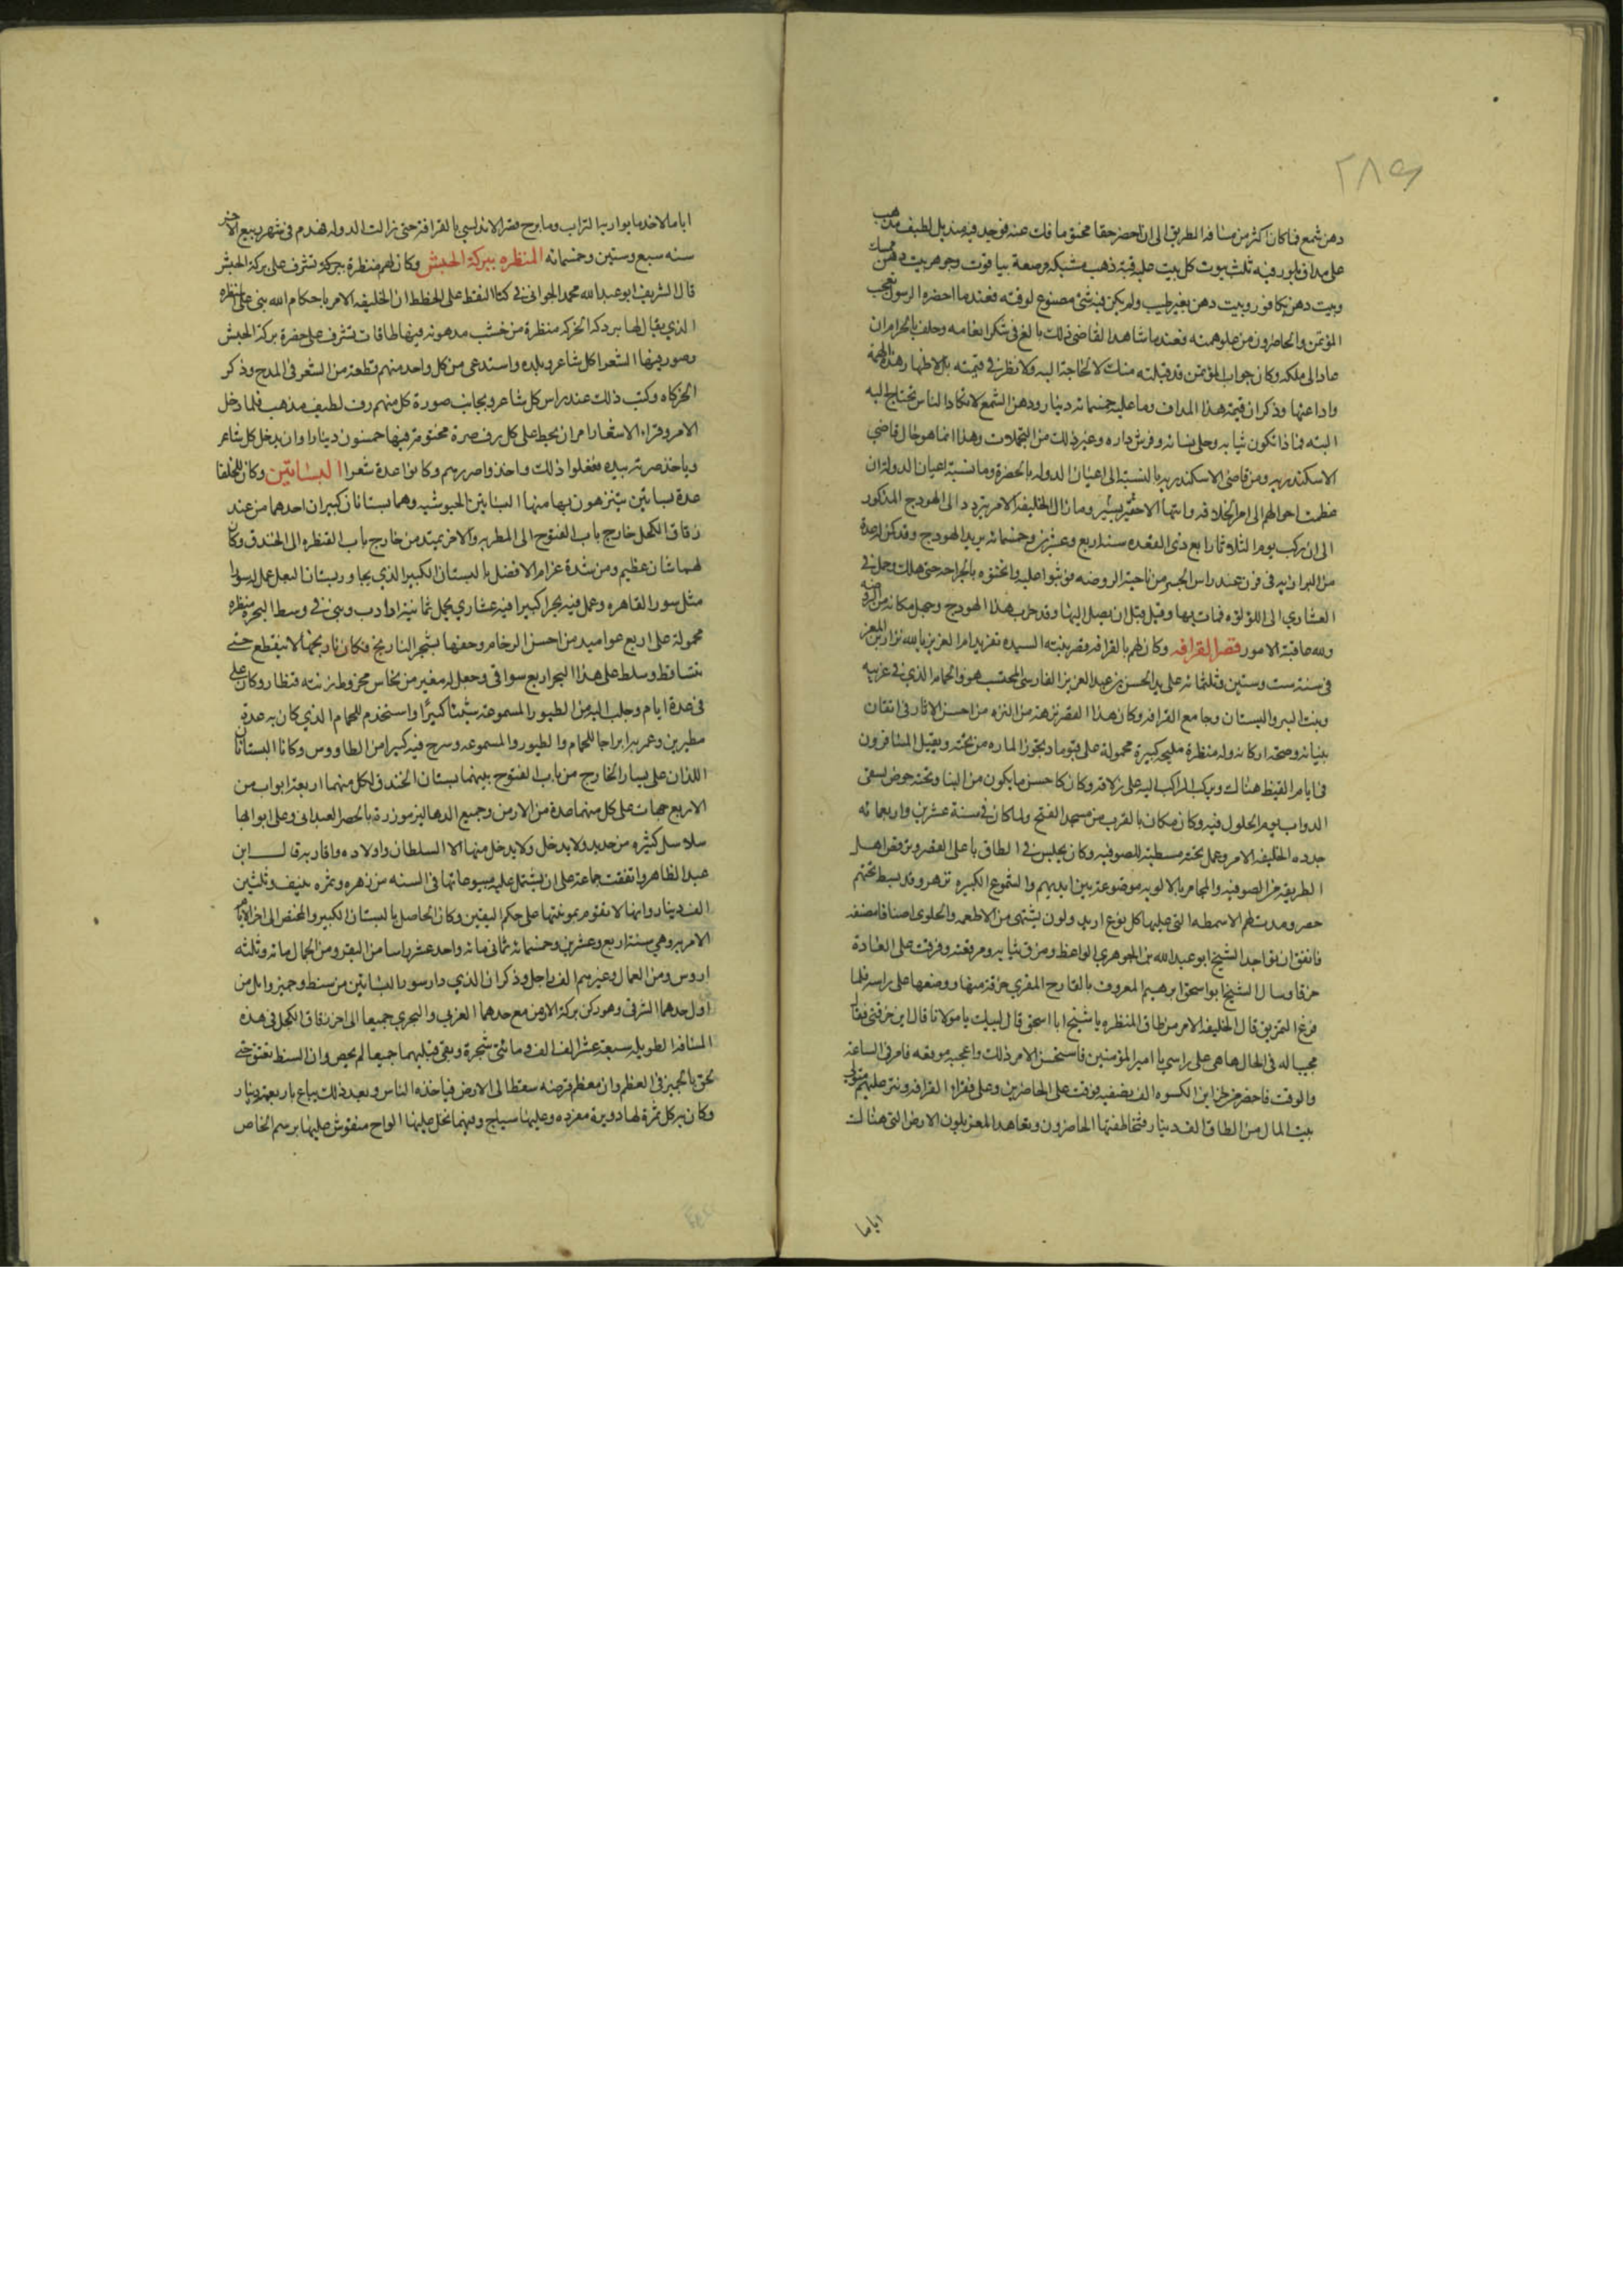 ٢٨٩
دهن شمع فما كان اكثر من مسافه الطريق الى ان احضر حقا مختوما فك عنه فوجد فيه منديل لطيف مذهب
على مداف بلور فيه ثلث بيوت كل بيت عليه قبة ذهب مشبكه مرصعة بياقوت وجوهر بيت دهن بمسك
وبيت دهن بكافور وبيت دهن بغير طيب ولم يكن فيه شئ مصنوع لوقته فعندما احضره الرسول تعجب
المؤتمن والحاضرون من علو همته فعندما شاهد القاضى ذلك بالغ فى شكر انعامه وحلف بالحرام ان
عاد الى ملكه وكان جواب المؤتمن قد قبلته منك لا لحاجة اليه ولا نظر فى قيمته بل لاظهار هذه الهمة
واذاعتها وذكر ان قيمة هذا المداف وما عليه خمسمائه دينار ودهن الشمع لا تكاد الناس تحتاج اليه
البته فماذا تكون ثيابه وحلى نسائه وفرش داره وغير ذلك من التجملات وهذا انما هو حال قاضى
الاسكندريه ومن قاضى الاسكندريه بالنسبة الى اعيان الدوله بالحضرة وما نسبة اعيان الدوله وان
عظمت احوالهم الى امر الخلافه وابهتها الا حقير يسير وما زال الخليفه الامر يتردد الى الهودج المذكور
الى ان ركب يوم الثلاثا رابع ذى القعده سنة اربع وعشرين وخمسمائه يريد الهودج وقد كمن له عدة
من النزاريه فى فرن عند راس الجسر من ناحية الروضه فوثبوا عليه واثخنوه بالجراحه حتى هلك وحمل فى
العشارى الى اللؤلؤه فمات بها وقيل قبل ان يصل اليها وقد خرب هذا الهودج وجهل مكانه من الروضه
ولله عاقبة الامور قصر القرافه وكان لهم بالقرافه قصر بنته السيده تغريد ام العزيز بالله نزار بن المعز
فى سنة ست وستين وثلثمائه على يد الحسن بن عبد العزيز الفارسى المحتسب هو والحمام الذى فى غربيه
وبنت البير والبستان وجامع القرافه وكان هذا القصر نزهة من النزه من احسن الاثار فى اتقان
بنيانه وصحة اركانه وله منظرة مليحه كبيرة محمولة على قبو ما ديجوز الماره من تحته ويقيل المسافرون
فى ايام القيظ هناك ويركب الراكب اليه على زلاقه وكان كاحسن ما يكون من البنا وتحته حوض لسقى
الدواب يوم الحلول فيه وكان مكانه بالقرب من مسجد الفتح ولما كان فى سنة عشرين واربعمائه
جدده الخليفه الامر وعمل تحته مصطبة للصوفيه وكان يجلس فى الطاق باعلى القصر ويرقص اهل
الطريقه من الصوفيه والمجامر بالالويه موضوعة بين ايديهم والشموع الكبيره تزهر وقد بسط تحتهم
حصر ومدت لهم الاسمطه التى عليها كل نوع لذيذ ولون يشتهى من الاطعمه والحلوى اصنافا مصنفه
فاتفق ان تواجد الشيخ ابو عبد الله بن الجوهرى الواعظ ومزق ثيابه ومرقعته وفرقت على العادة
خرقا وسال الشيخ ابو اسحق ابرهيم المعروف بالقارح المقرى خرقة منها ووضعها على راسه فلما
فرغ التمزيق قال الخليفه الامر من طاق المنظره يا شيخ ابا اسحق قال لبيك يا مولانا قال اين خرقتى فقال
مجيبا له فى الحال هاهى على راسى يا امير المؤمنين فاستحسن الامر ذلك واعجبه موقعه فامر فى الساعة
والوقت فاحضر من خزاين الكسوه الف نصفيه ففرقت على الحاضرين وعلى فقراء القرافه ونثر عليهم متولى
بيت المال من الطاق الف دينار فتخاطفها الحاضرون وتعاهد المغربلون الارض التى هناك
اياما
اياما لاخذ ما يواريه التراب وما برح قصر الاندلسى بالقرافة حتى زالت الدوله فهدم فى شهر ربيع الاخر
سنه سبع وستين وخمسمائه المنظره ببركة الحبش وكان لهم منظرة بركة تشرف على بركة الحبش
قال الشريف ابو عبد الله محمد الجوانى فى كتاب النقط على الخطط ان الخليفه الامر باحكام الله بنى على المنظره
الذى يقال لها بير دكة الخركه منظرة من خشب مدهونه فيها طاقات تشرف على خضرة بركة الحبش
وصور فيها الشعرا كل شاعر وبلده واستدعى من كل واحد منهم قطعة من الشعر فى المدح وذكر
الخركاه وكتب ذلك عند راس كل شاعر وبجانب صورة كل منهم رف لطيف مذهب فلما دخل
الامر وقراء الاشعار امر ان يحط على كل رف صرة مختومة فيها خمسون دينارا وان يدخل كل شاعر
وياخذ صرته بيده ففعلوا ذلك واخذوا صررهم وكانوا عدة شعرا البساتين وكان للخلفا
عدة بساتين يتنزهون بها منها البساتين الجيوشيه وهما بستانان كبيران احدهما من عند
زقاق الكحل خارج باب الفتوح الى المطريه والاخر يمتد من خارج باب القنطره الى الخندق وكان
لهما شان عظيم ومن شدة غرام الافضل بالبستان الكبير الذى يجاور بستان البعل عمل له سورا
مثل سور القاهره وعمل فيه بحرا كبيرا فيه عشارى يحمل ثمانية ارادب وبنى فى وسط البحر منظره
محمولة على اربع عواميد من احسن الرخام وحفها بشجر النارنج فكان نارنجها لا ينقطع حتى
يتساقط وسلط على هذا البحر اربع سواقى وجعل له معبر من نحاس مخروط زنته قنطار وكان يملى
فى عدة ايام وجلب اليه من الطيور المسموعة شيئا كبيرا واستخدم للحمام الذى كان به عدة
مطيرين وعمر به ابراجا للحمام والطيور والمسموعه وسرح فيه كثيرا من الطاووس وكانا البستانان
اللذان على يسار الخارج من باب الفتوح بينهما بستان الخندق لكل منهما اربعة ابواب من
الاربع جهات على كل منها عدة من الارمن وجميع الدهاليز موزرة بالحصر العبدانى وعلى ابوابها
سلاسل كثيره من حديد ولا يدخل ولا يدخل منها الا السلطان واولاده واقاربه قال ابن
عبد الظاهر واتفقت جماعة على ان يشتمل عليه مبيوعاتها فى السنه من زهره وثمره بنيف وثلثين
الف دينار وانها لا تقوم بموونتها على حكم اليقين وكان الحاصل بالبستان الكبير والمختص الى اخر الايام
الامريه وهى سنة اربع وعشرين وخمسمائه ثمانى مائه واحد عشر راسا من البقر ومن الجمال مائه وثلثه
اروس ومن العمال وغيرهم الف راجل وذكر ان الذى دار سور البساتين من سنط وجميز واثل من
اول حدهما الشرقى وهو ركن بركة الارمن مع حدهما الغربى والبحرى جميعا الى اخر زقاق الكحل فى هذه
المسافه الطويله سبعة عشر الف الف ومائتى شجرة وبقى قبليهما جميعا لم يحص وان السنط تغتق حتى
لحق بالجميز فى العظم وان معظم قرضه سقط الى الارض فياخذه الناس وبعد ذلك يباع باربعة دينار
وكان به كل ثمرة لها دويرة مفرده وعليها سياج وفيها نخل عليها الواح منقوش عليها برسم الخاص